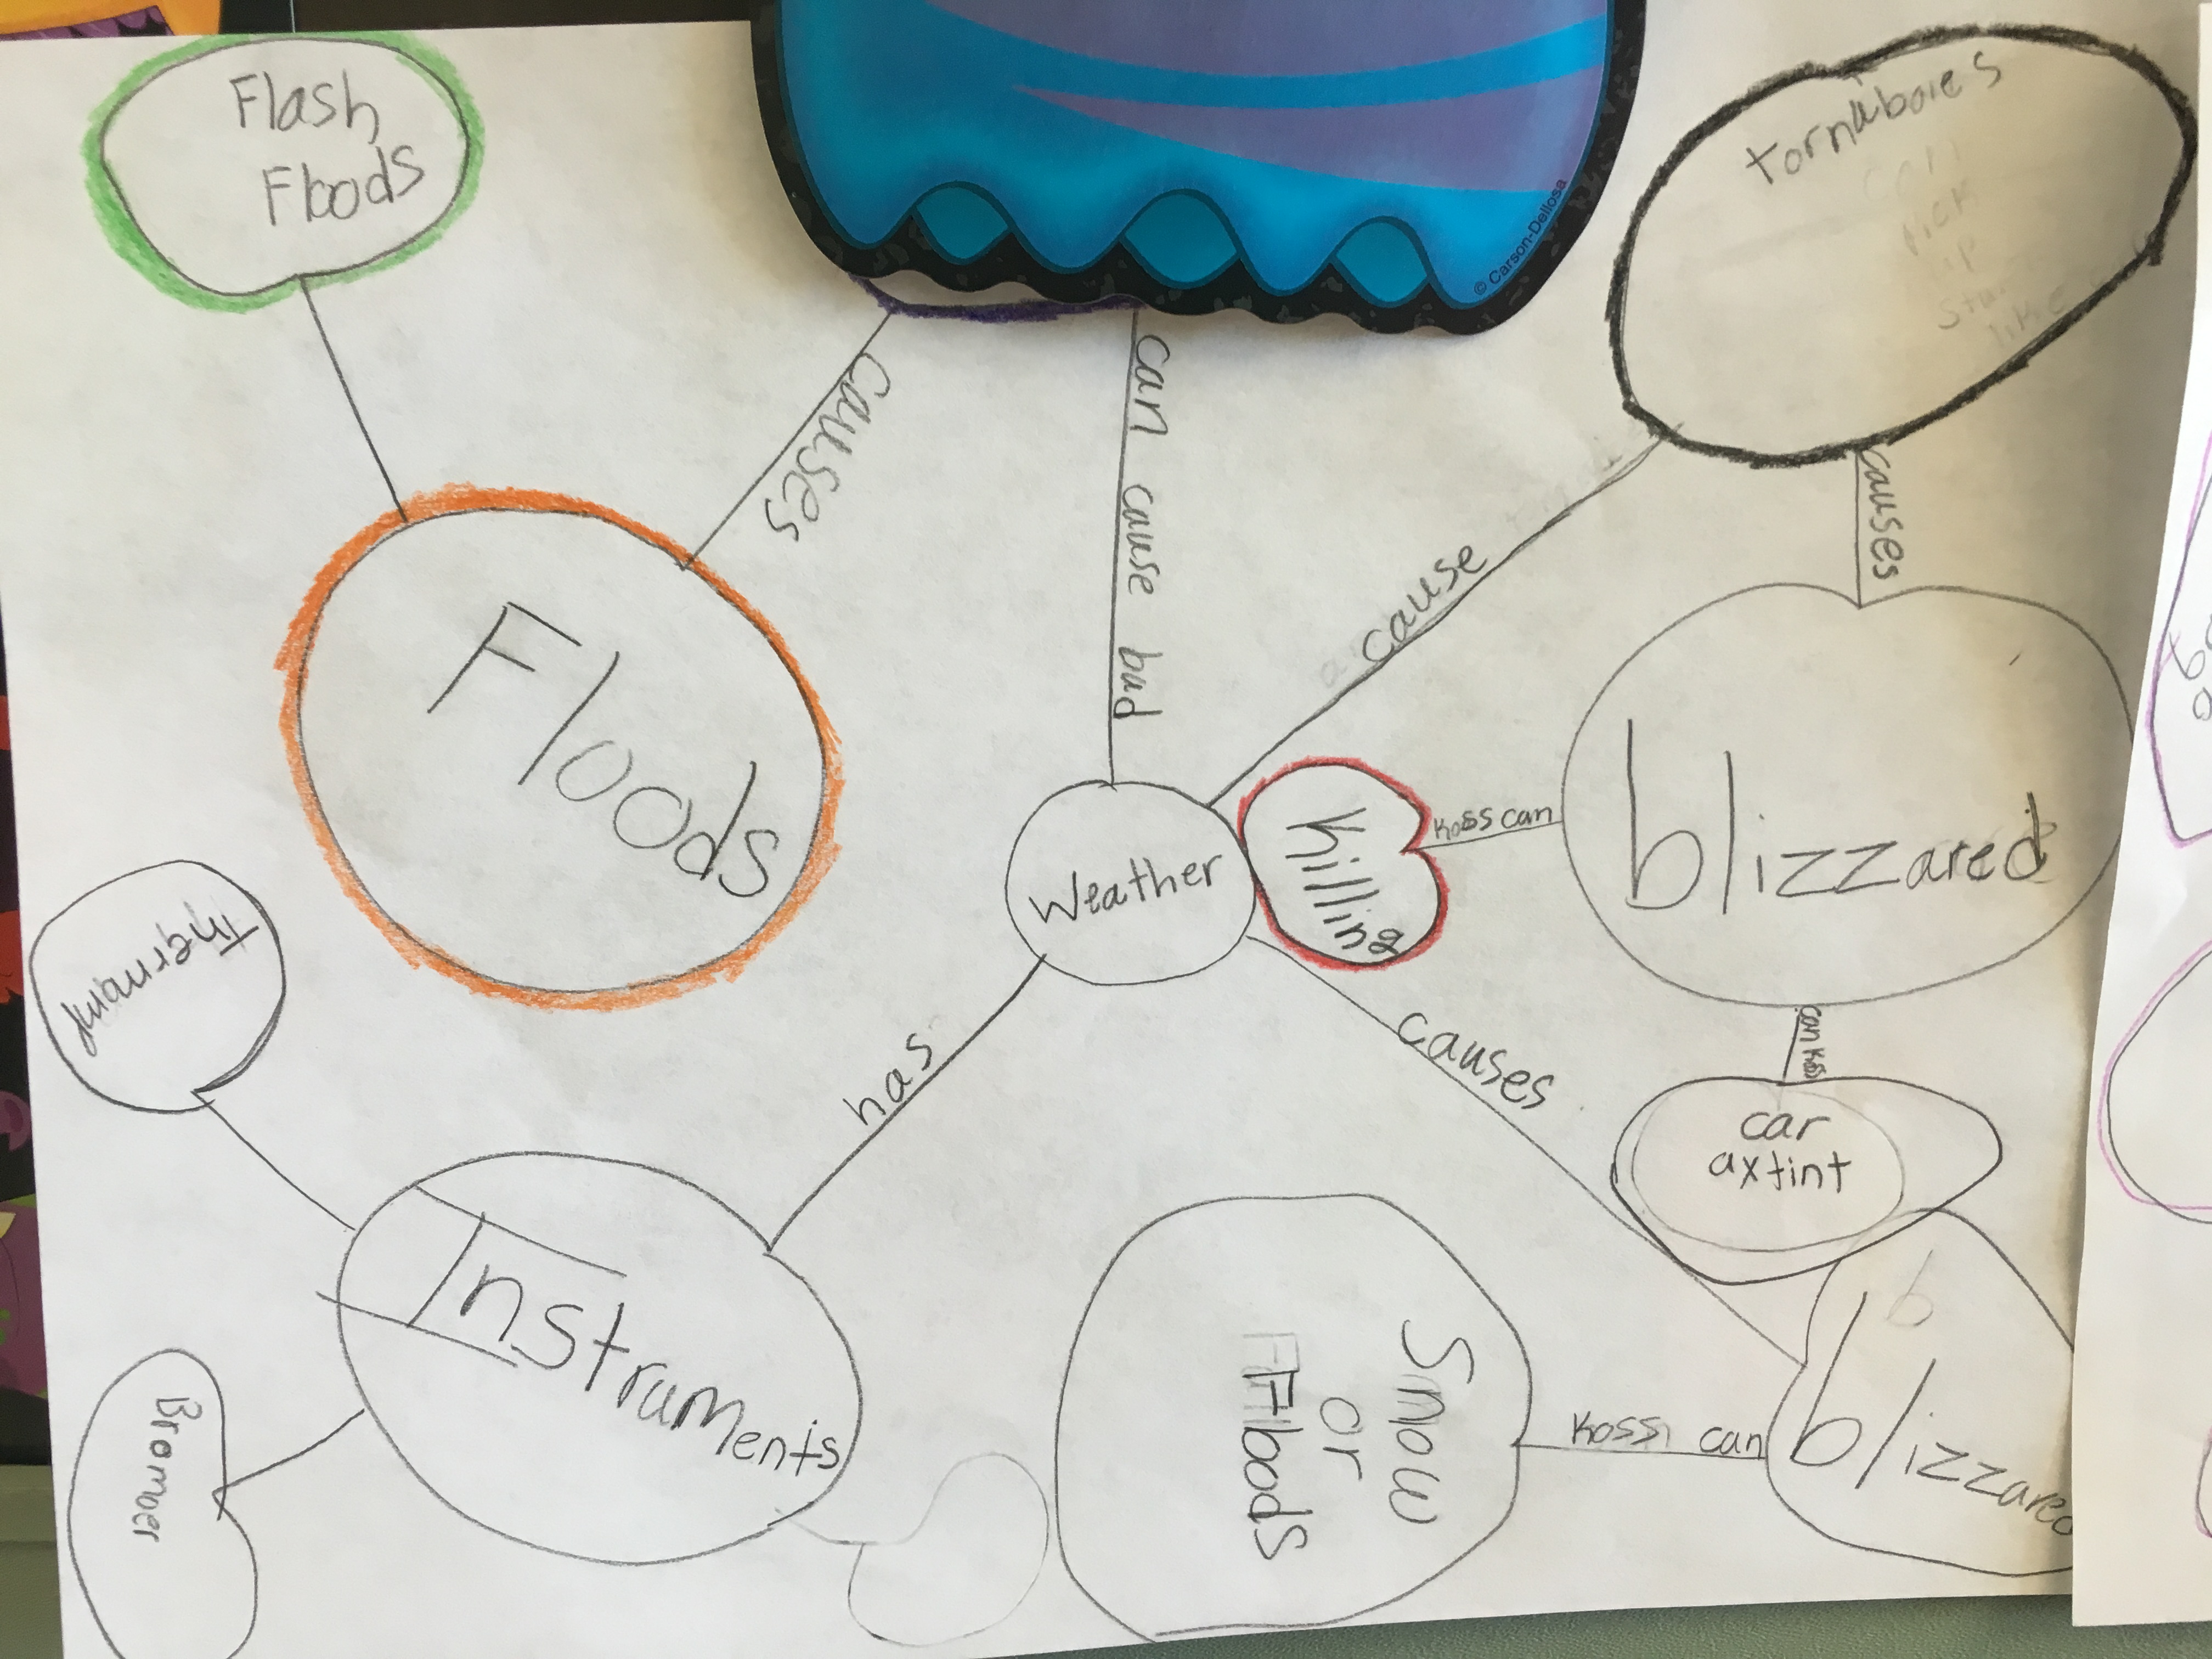 Flash
Floods
© Carson-Dellosa
tornaboies
pick
up
like
causes
can cause bad
cause
causes
Floods
Weather
killing
koss can
blizzared
has
causes
can koss
car
axtint
Instruments
Bromoer
Snow
or
Floods
koss can
b
blizzared